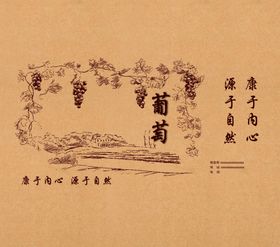 葡萄
康于内心 源于自然
康于内心
源于自然